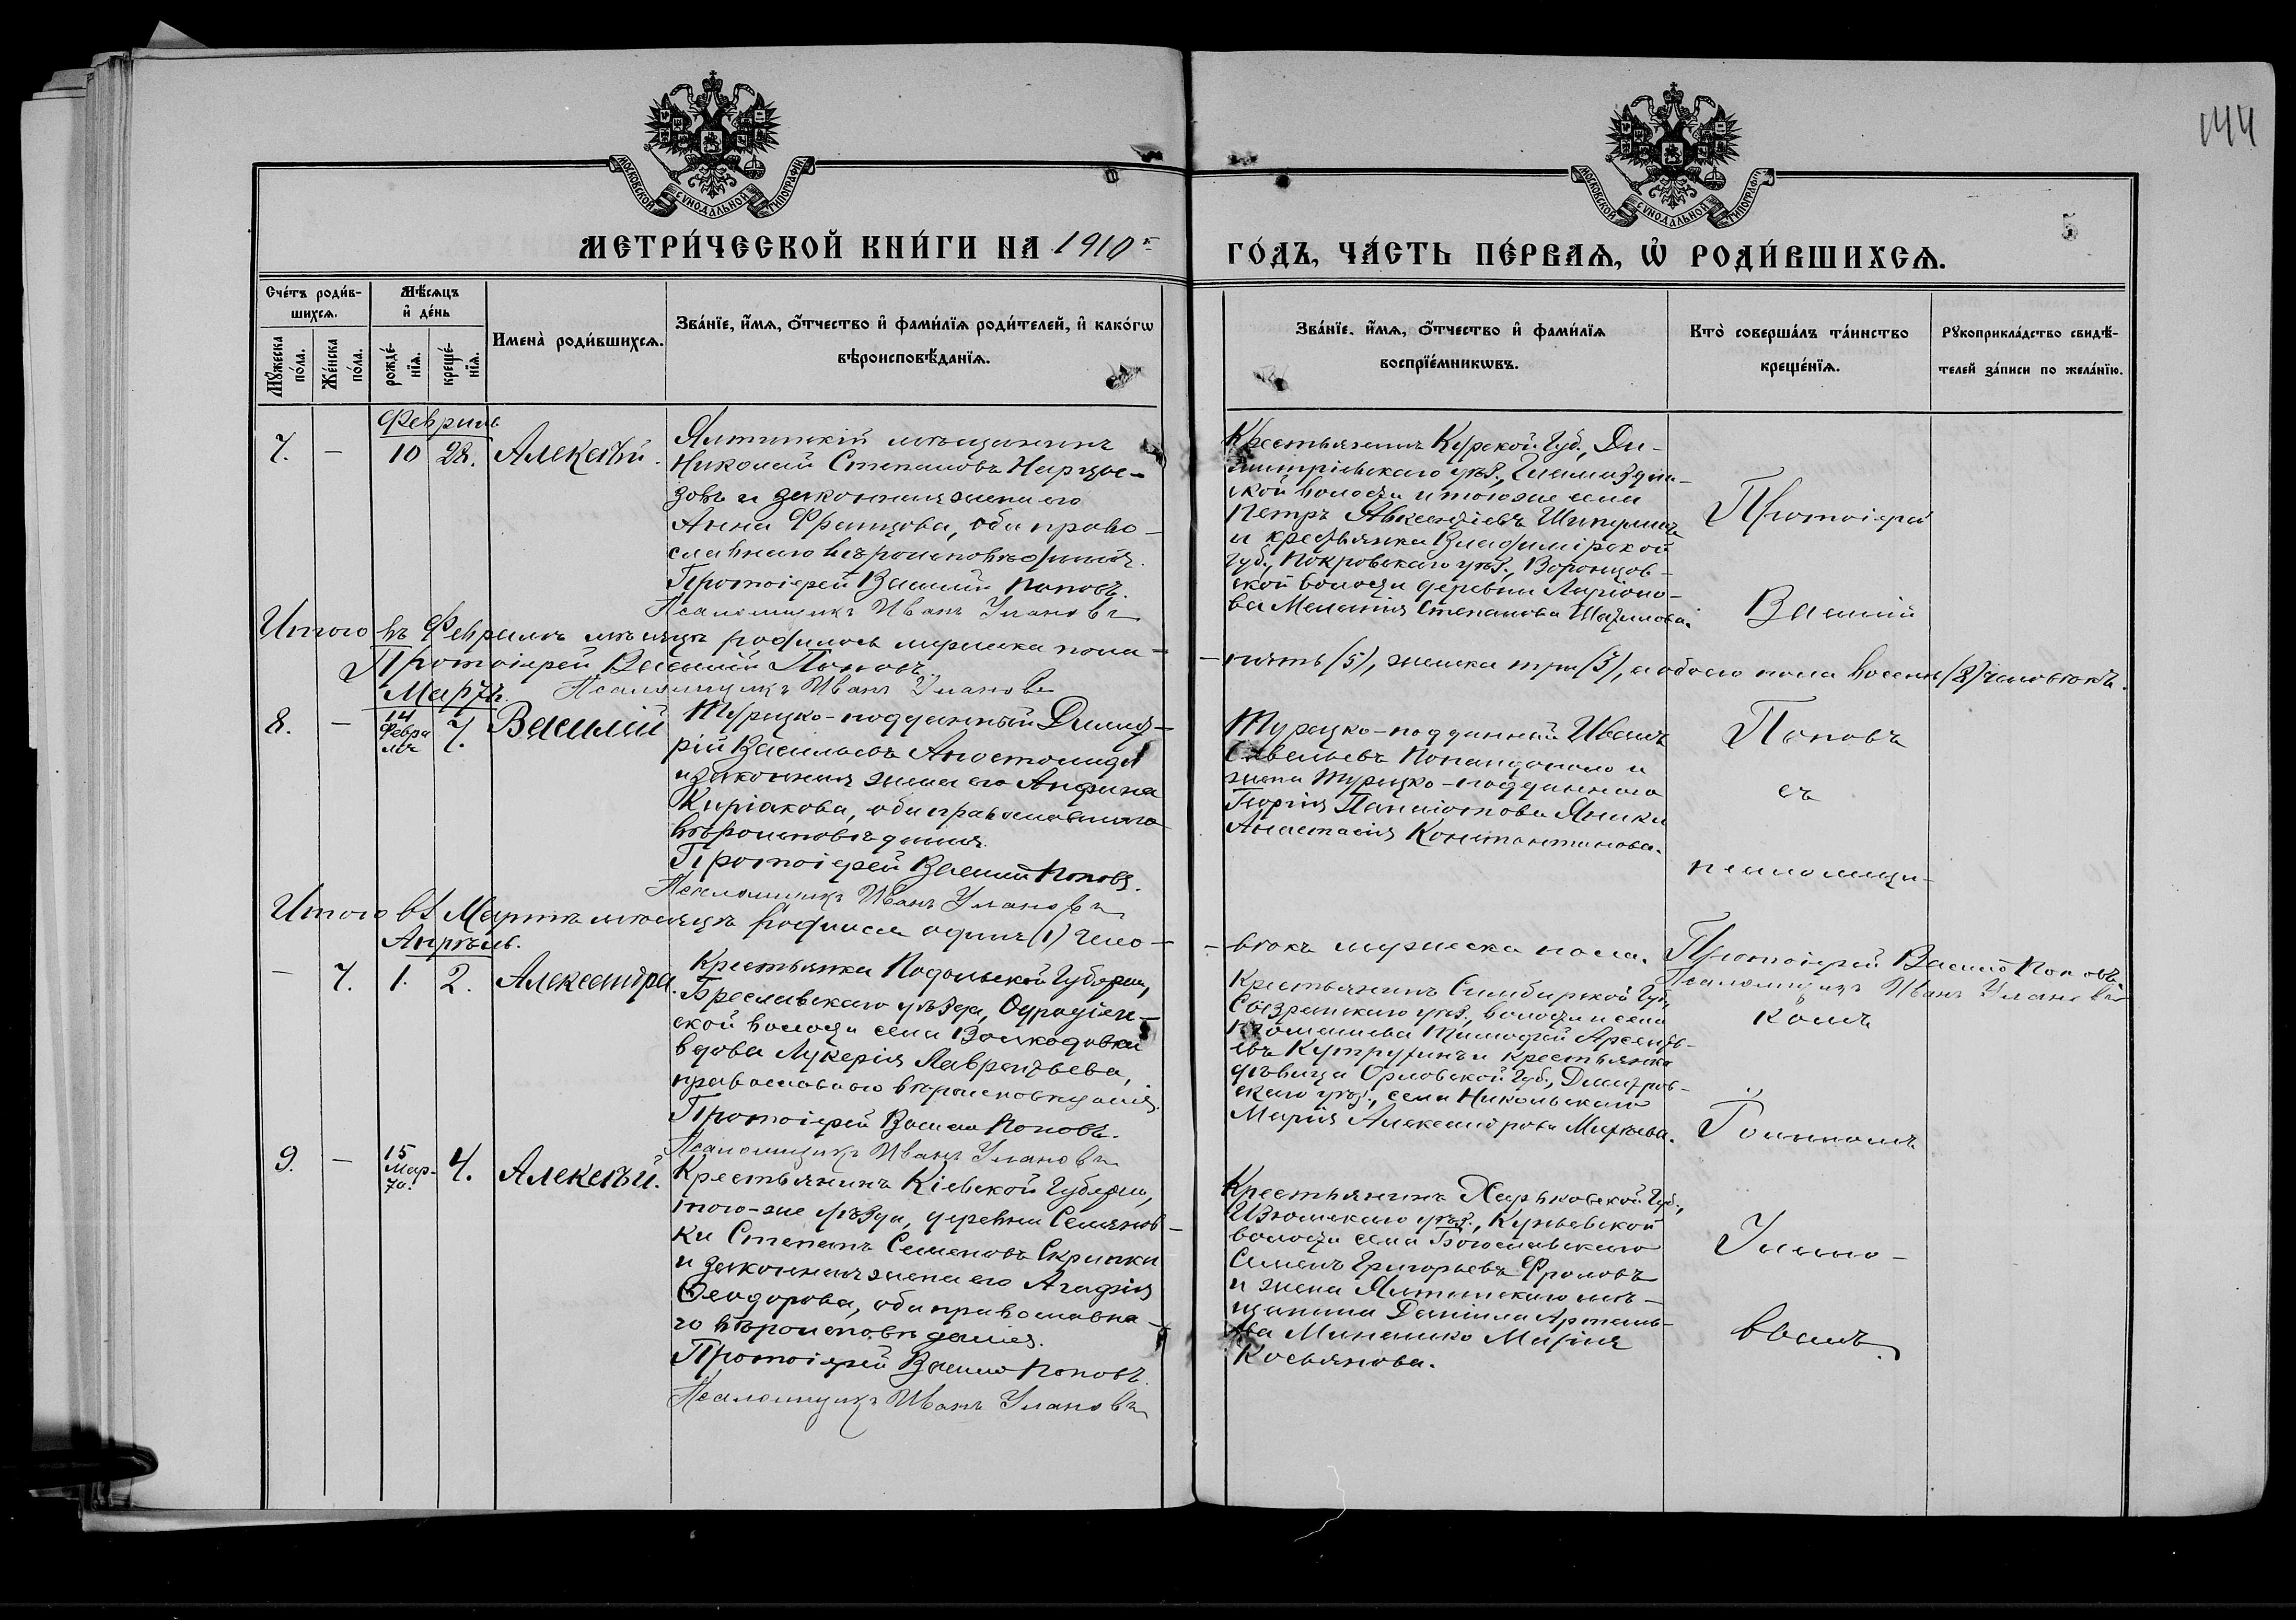 144
МОСКОВСКОЙ СѴНОДАЛЬНОЙ ТИПОГРАФІИ
МОСКОВСКОЙ СѴНОДАЛЬНОЙ ТИПОГРАФІИ
5
МЕТРИ́ЧЕСКОЙ КНИ́ГИ НА 1910 г.
ГО́ДЪ, ЧА́СТЬ ПЕ́РВАѦ, Ѽ РОДИ́ВШИХСѦ.
Сче́тъ роди́в-
шихсѧ.
Мѣ́сѧцъ
и҆ де́нь
Мꙋ́жеска
по́ла.
Же́нска
по́ла.
рожде́-
нїѧ.
креще́-
нїѧ.
Имена̀ роди́вшихсѧ.
Зва́нїе, и҆́мѧ, ѻ҆́тчество и҆ фами́лїѧ роди́телей, и҆ како́гѡ
вѣроисповѣ́данїѧ.
Зва́нїе, и҆́мѧ, ѻ҆́тчество и҆ фами́лїѧ
воспрїе́мникѡвъ.
Кто̀ соверша́лъ та́инство
креще́нїѧ.
Рꙋкоприкла́дство свидѣ́-
телей за́писи по жела́нїю.
Февраль
7.
—
10
28.
Алексѣй.
Ялтинскій мѣщанинъ
Николай Степановъ Нарцис-
зовъ и законная жена его
Анна Францова, оба право-
славнаго вѣроисповѣданія.
Протоіерей Василій Поповъ.
Псаломщикъ Иванъ Улановъ
Крестьянинъ Курской Губ., Ди-
митріевскаго уѣз.,
ской волости и того же села
Петръ Авксентіевъ
и крестьянка Владимірской
губ., Покровскаго уѣз., Воронцов-
ской волости деревни Ларіоно-
ва Меланія Степанова
Протоіерей
Василій
Итого въ Февралѣ мѣсяцѣ родилось мужеска пола -
- пять (5), женска три (3), а обоего пола восемь (8) человѣкъ.
Протоіерей Василій Поповъ
Псаломщикъ Иванъ Улановъ
Мартъ.
8.
—
14
Февра
ля
7.
Василій
Турецко-подданный Димит-
рій Васильевъ Апостолиди
и законная жена его Анфина
Киріакова, оба православнаго
вѣроисповѣданія.
Протоіерей Василій Поповъ.
Псаломщикъ Иванъ Улановъ
Турецко-подданный Иванъ
Савельевъ и
жена Турецко-подданнаго
Георгія Яники
Анастасія Константинова.
Поповъ
съ
псаломщи-
Итого въ Мартѣ мѣсяцѣ родился одинъ (1) чело-
- вѣкъ мужеска пола. Протоіерей Василій Поповъ
Псаломщикъ Иванъ Улановъ
Апрѣль.
—
7.
1.
2.
Александра.
Крестьянка Подольской Губерніи,
Брацлавскаго уѣзда,
ской волости села Волкодовки
вдова Лукерія Лаврентьева,
православнаго вѣроисповѣданія.
Протоіерей Василій Поповъ.
Псаломщикъ Иванъ Улановъ
Крестьянинъ Симбирской Губ.,
Сызранскаго уѣз., волости и села
Тимофей Арсенть-
евъ и крестьянка
дѣвица Орловской Губ., Дмитров-
скаго уѣз., села Никольскаго
Марія Александрова
комъ
Іоанномъ
9.
—
15
Мар-
та.
4.
Алексѣй.
Крестьянинъ Кіевской Губерніи,
того-же уѣзда, деревни Семянов-
ки Степанъ Семеновъ Скрипки
и законная жена его Агафія
Ѳеодорова, оба православна-
го вѣроисповѣданія.
Протоіерей Василій Поповъ.
Псаломщикъ Иванъ Улановъ
Крестьянинъ Харьковской Губ.,
Изюмскаго уѣз., Куньевской
волости села Богославскаго
Семенъ Григорьевъ Фроловъ
и жена Ялтинскаго мѣ-
щанина Даніила
Марія
Косьянова.
Улано-
вымъ.